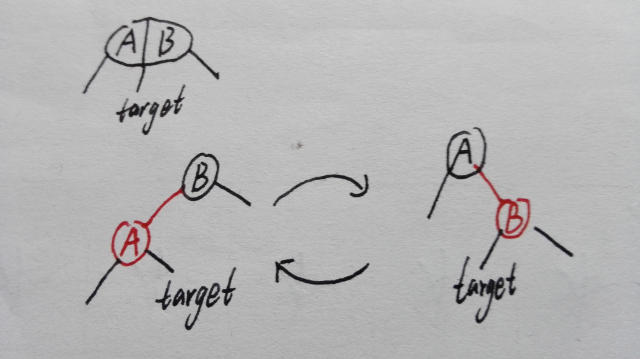 A B
target
B
A
target
A
B
target